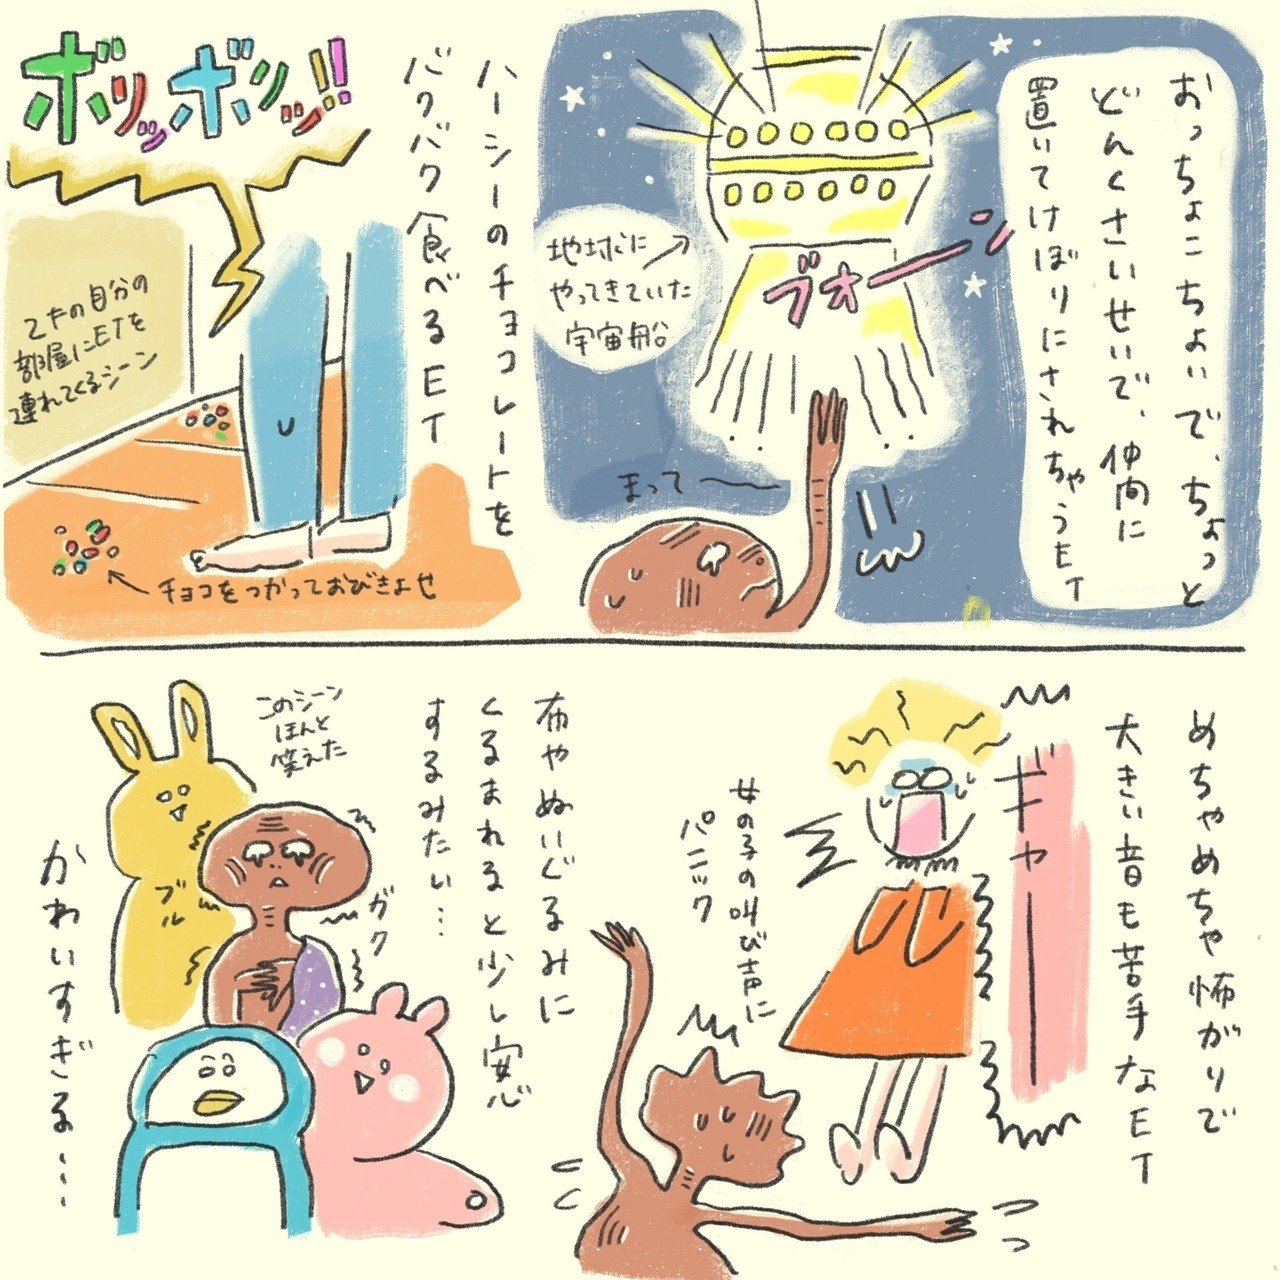 おっちょこちょいで、ちょっと
どんくさいせいで、仲間に
置いてけぼりにされちゃうET
ブォーン
地球に
やってきていた
宇宙船
まって
ハーシーのチョコレートを
バクバク食べるET
ボリッボリッ!!
こチの自分の
部屋にETを
連れてくるシーン
チョコをつかっておびきよせ
めちゃめちゃ怖がりで
大きい音も苦手なET
ギャー
女の子の叫び声に
パニック
布やぬいぐるみに
くるまれると少し安心
するみたい…
このシーン
ほんと
笑えた
ブル
ガク
かわいすぎる…